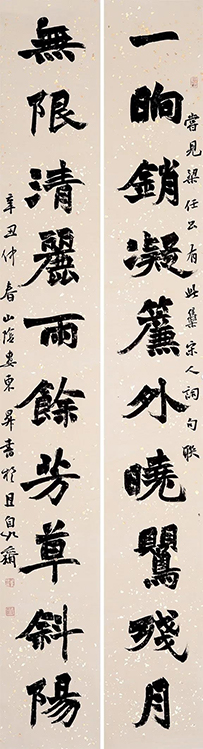 嘗見梁任公有此集宋人詞句聯
一晌銷凝簾外曉鸎殘月
無限清麗雨餘芳草斜陽
辛丑仲春山陰婁東昇書於且